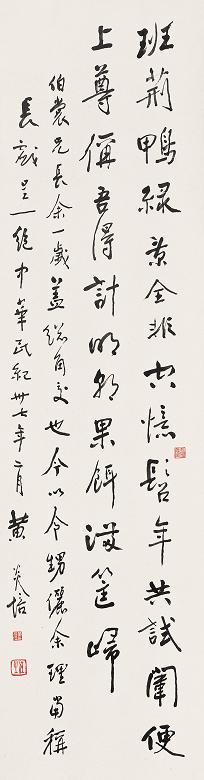 班荊鴨綠景全非空憶髫年共試闈便
上尊偁吾得計明朝果餌滿筐歸
伯裳兄長余一歲蓋總角交也今以令甥儷余理當稱
長戲呈一絕中華民紀卅七年二月黃炎培